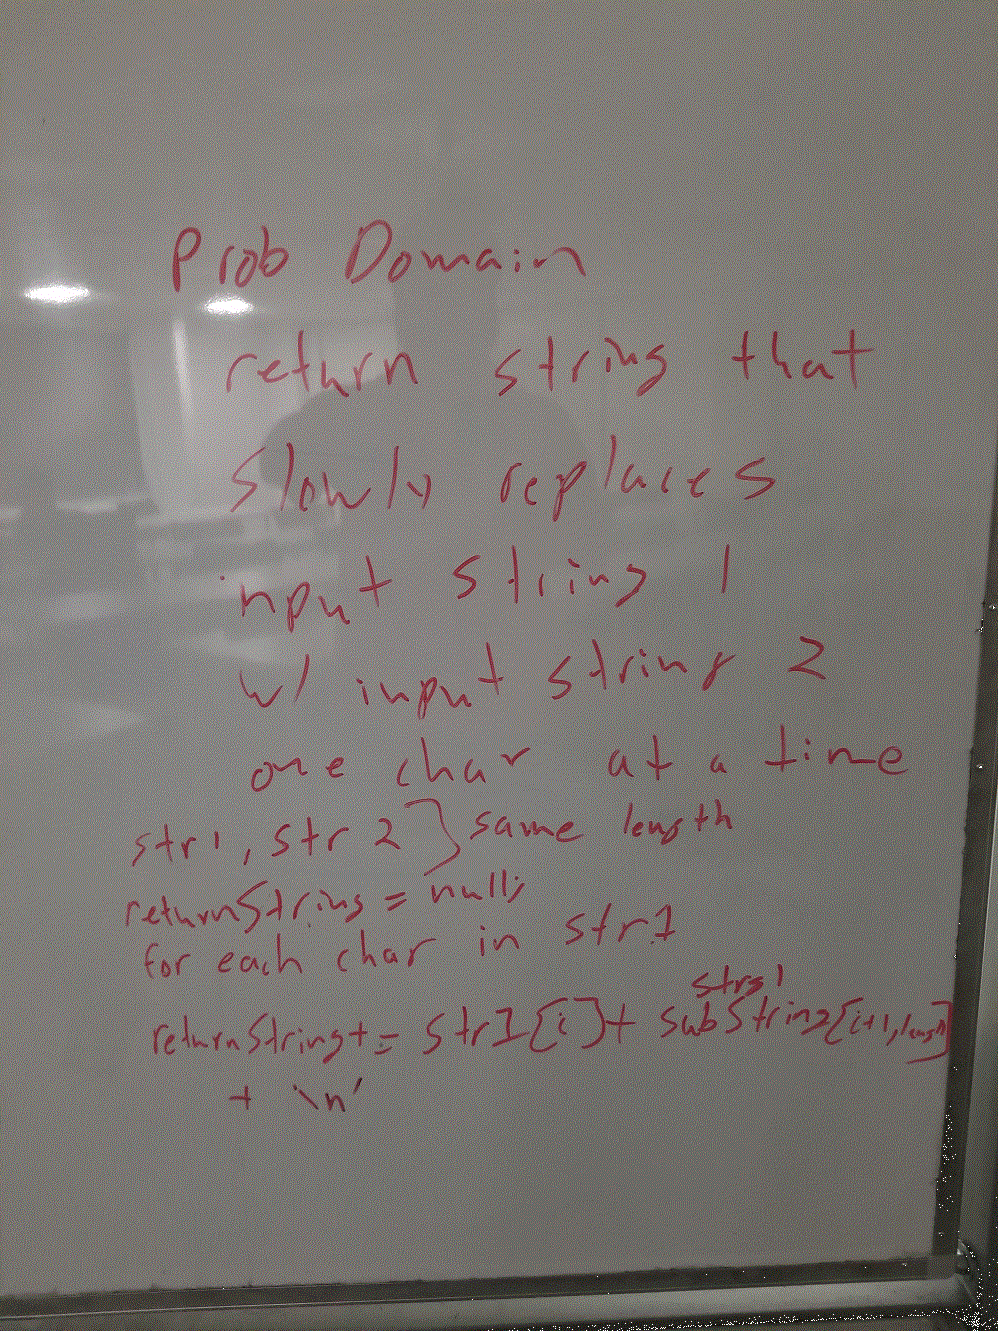 Prob Domain
return string that
slowly replaces
input string 1
w/ input string 2
one char at a time
str1, str 2 } same length
returnString = null;
for each char in str1
strs1
returnString += str1[i] + subString[i+1, length]
+ '\n'